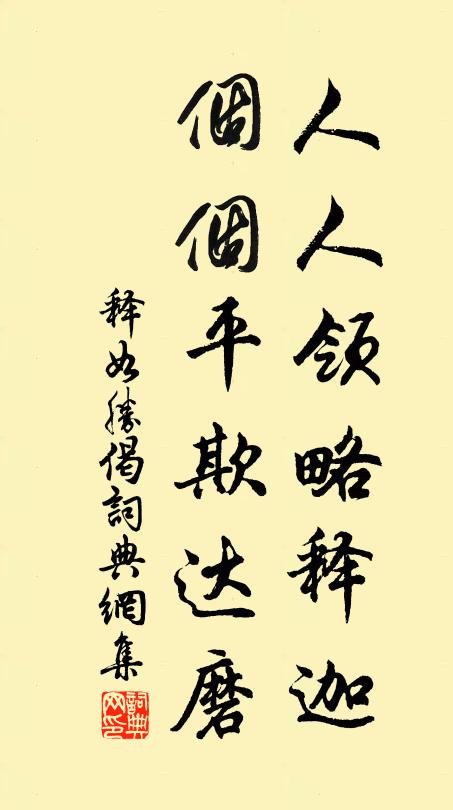 人人领略释迦
個個平欺达磨
释如勝偈詞典網集
詞典网印